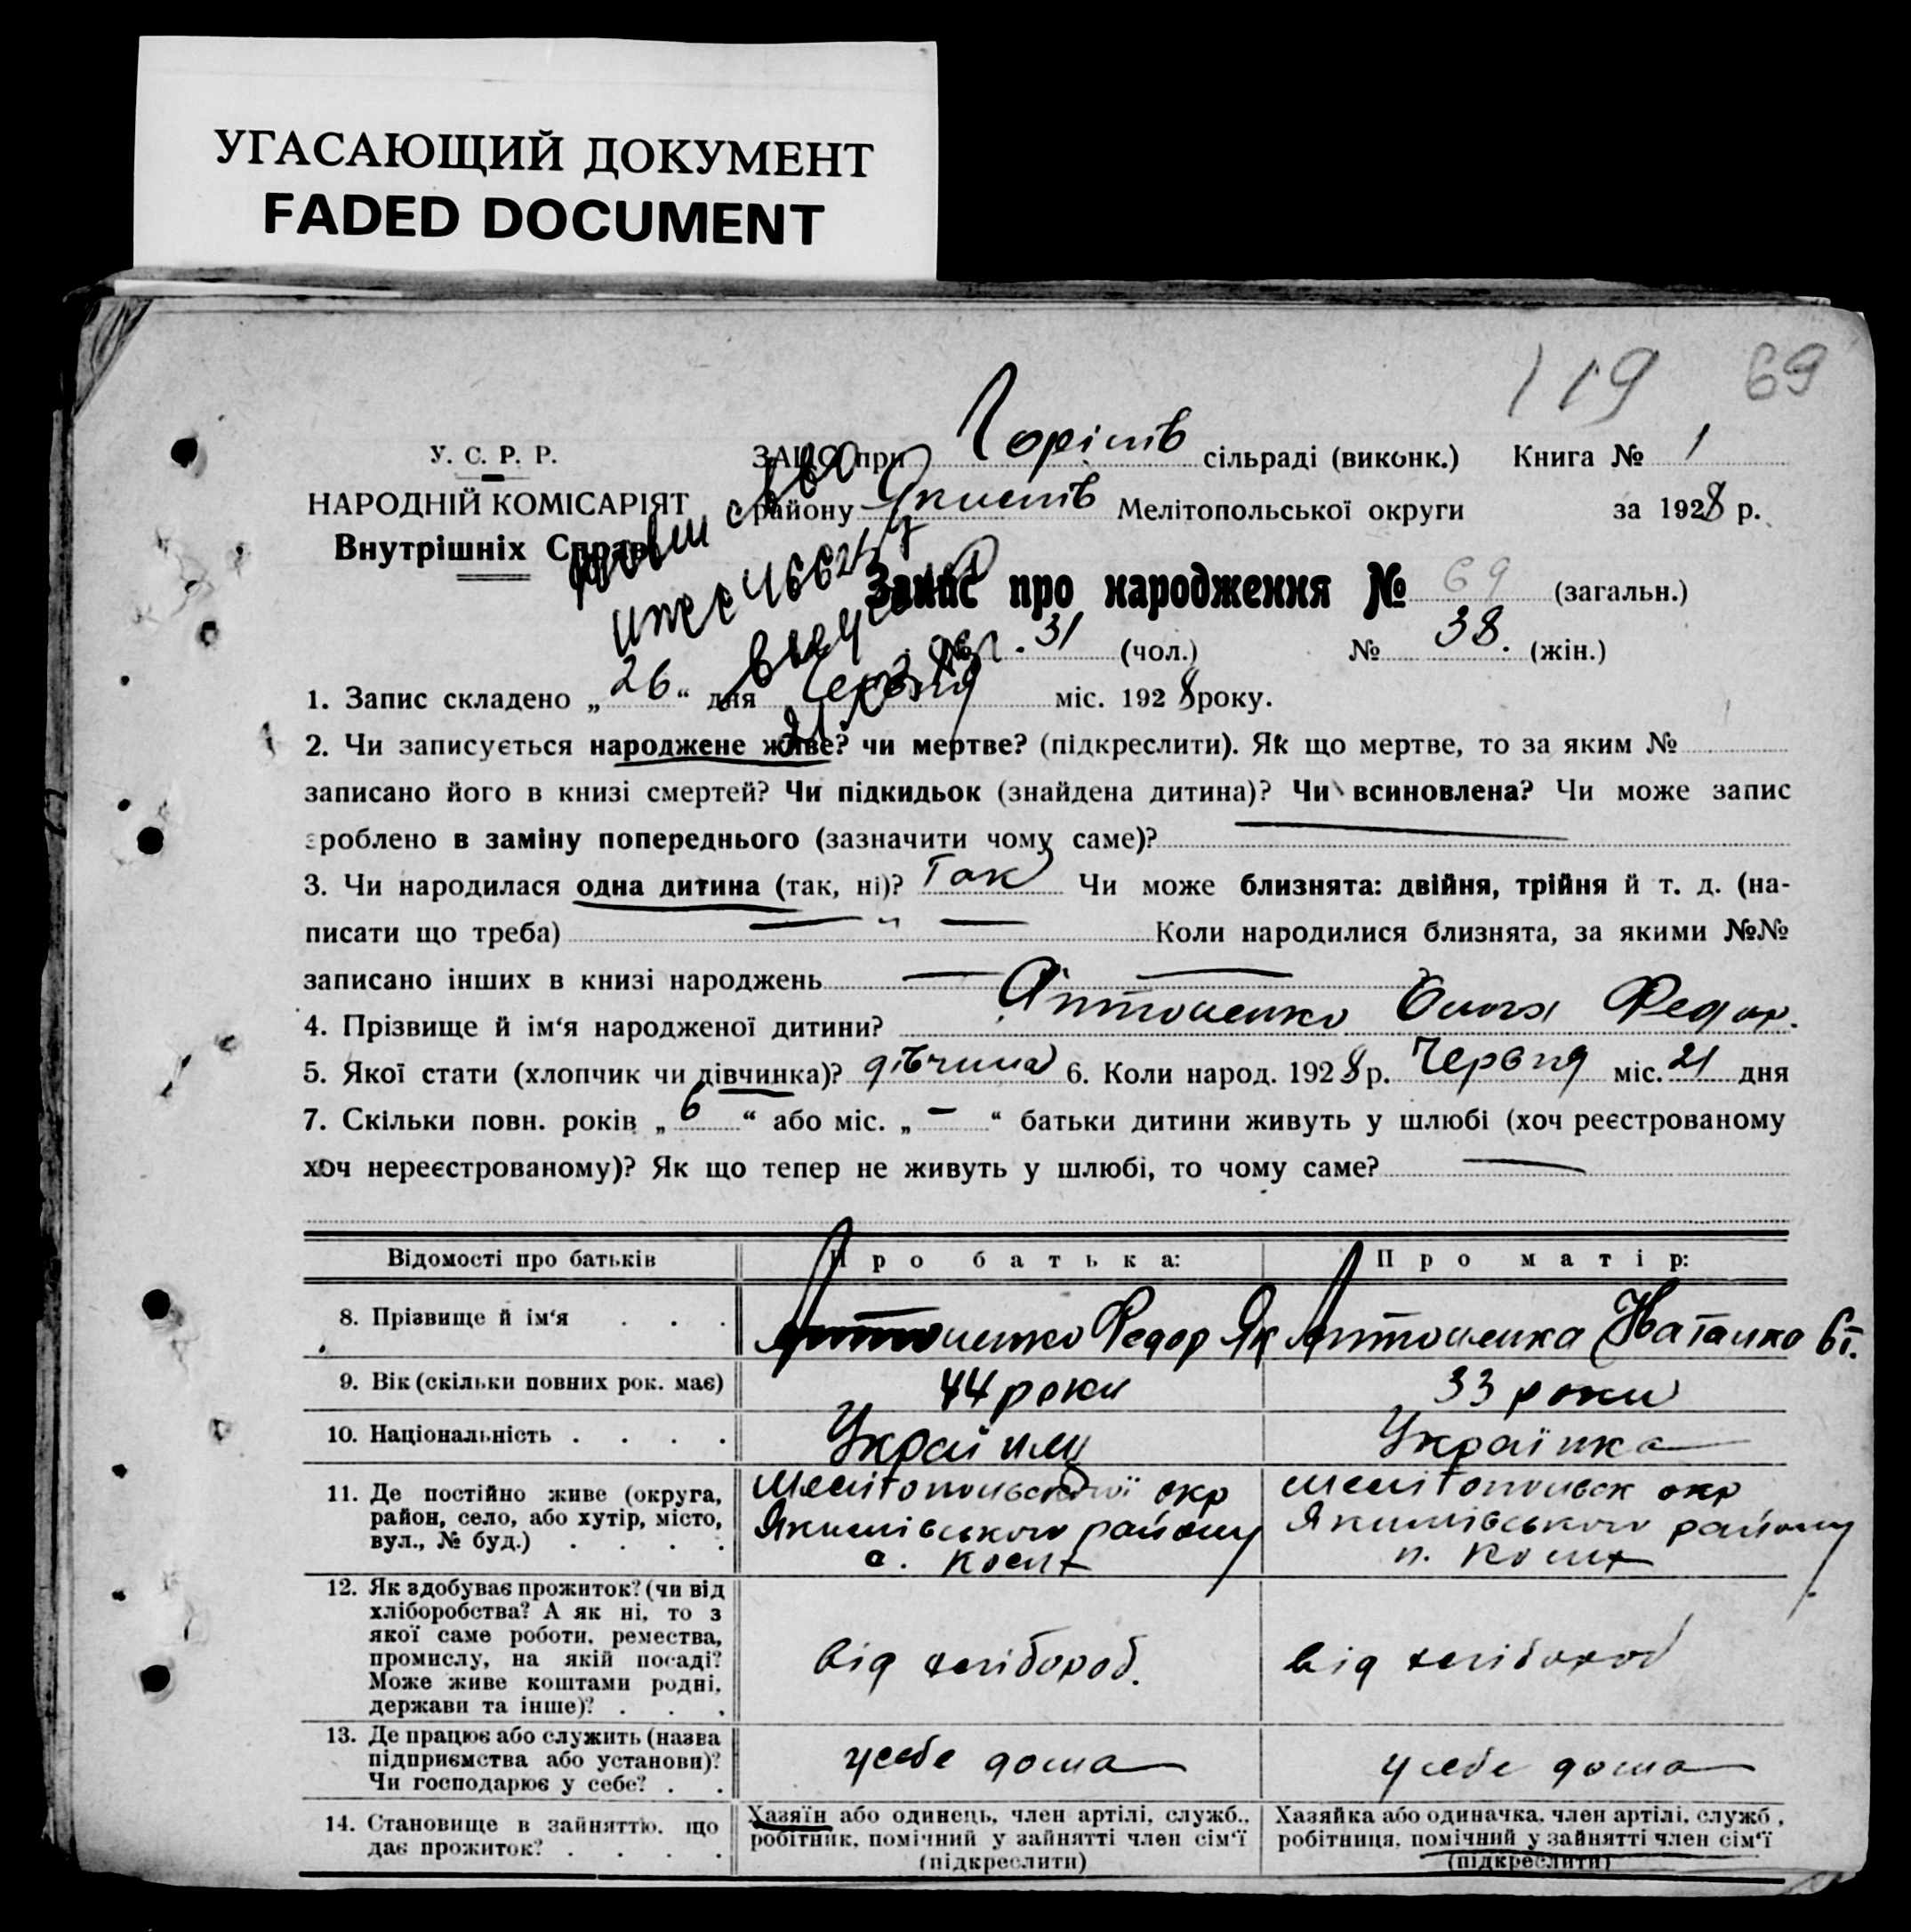 УГАСАЮЩИЙ ДОКУМЕНТ
FADED DOCUMENT
119 69
У. С. Р. Р.
НАРОДНІЙ КОМІСАРІЯТ
Внутрішніх Справ
ЗАЦС при Горіпів сільраді (виконк.) Книга № 1
району Якимів Мелітопольської округи за 1928 р.
Запис про народження № 69 (загальн.)
№ 31 (чол.) № 38. (жін.)
1. Запис складено „ 26 “ дня Червня міс. 1928 року.
2. Чи записується народжене живе? чи мертве? (підкреслити). Як що мертве, то за яким №
записано його в книзі смертей? Чи підкидьок (знайдена дитина)? Чи всиновлена? Чи може запис
зроблено в заміну попереднього (зазначити чому саме)?
3. Чи народилася одна дитина (так, ні)? Так Чи може близнята: двійня, трійня й т. д. (на-
писати що треба) — „ — Коли народилися близнята, за якими №№
записано інших в книзі народжень — —
4. Прізвище й ім‘я народженої дитини? Антоненко Ольга Федор.
5. Якої стати (хлопчик чи дівчинка)? дівчина 6. Коли народ. 1928 р. Червня міс. 21 дня
7. Скільки повн. років „ 6 “ або міс. „ — “ батьки дитини живуть у шлюбі (хоч реєстрованому
хоч нереєстрованому)? Як що тепер не живуть у шлюбі, то чому саме? —
Відомості про батьків Про батька: Про матір:
8. Прізвище й ім‘я . . . Антоненко Федор Як Антоненка Наталка
9. Вік (скільки повних рок. має) 44 роки 33 роки
10. Національність . . . . Українец Українка
11. Де постійно живе (округа,
район, село, або хутір, місто,
вул., № буд.) . . . .
Мелітопольської окр
Якимівського району
с. Косих
Мелітопольск окр
Якимівського району
п. Косих
12. Як здобуває прожиток? (чи від
хліборобства? А як ні, то з
якої саме роботи, ремества,
промислу, на якій посаді?
Може живе коштами родні,
держави та інше)? . . .
від хлібороб.
від хлібороб
13. Де працює або служить (назва
підприємства або установи)?
Чи господарює у себе? . .
у себе дома
у себе дома
14. Становище в зайняттю, що
дає прожиток? . . . .
Хазяїн або одинець, член артілі, служб.,
робітник, помічний у зайнятті член сім‘ї
(підкреслити)
Хазяйка або одиначка, член артілі, служб ,
робітниця, помічний у зайнятті член сім‘ї
(підкреслити)